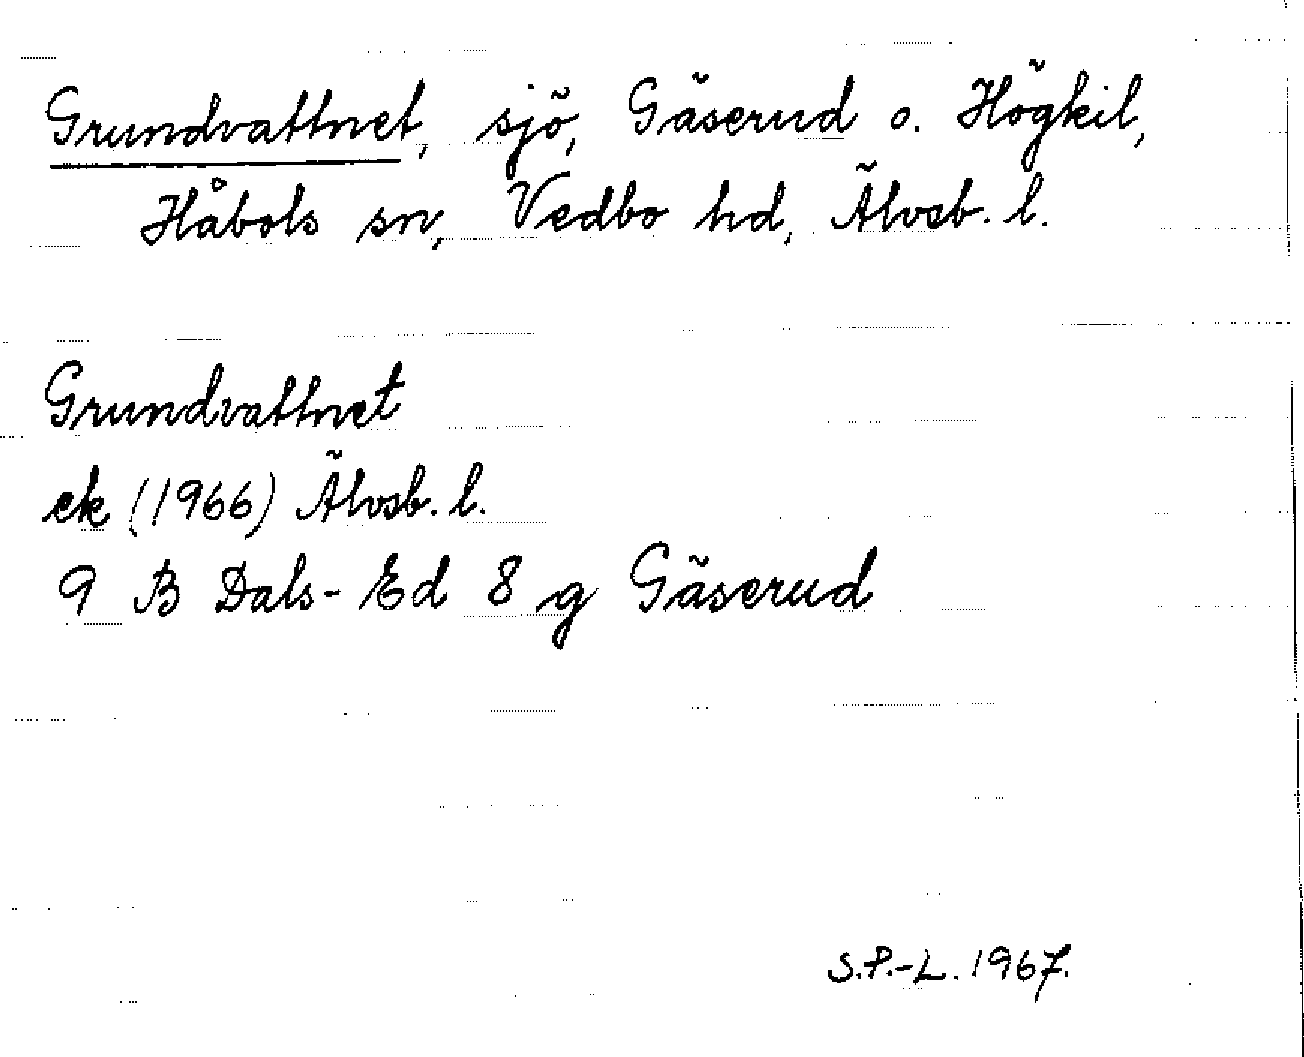 Grundvattnet, sjö, Gäserud o. Högkil,
Håbols sn, Vedbo hd, Älvsb. l.
Grundvattnet
ek (1966) Älvsb. l.
9 B Dals-Ed 8 g Gäserud
S.P.-L. 1967.